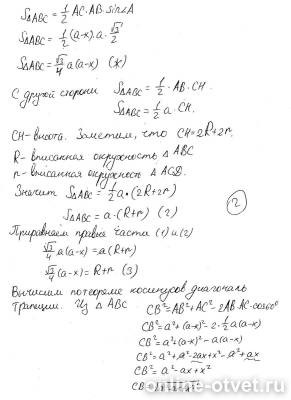 S△ABC = 1/2 AC·AB·sin∠A
S△ABC = 1/2 (a-x)·a·√3/2
S△ABC = √3/4 a(a-x) (ж)
С другой стороны S△ABC = 1/2·AB·CH
S△ABC = 1/2 a·CH.
CH-высота. Заметим, что CH=2R+2r.
R-вписанная окружность △ABC
r-вписанная окружность
Значит S△ABC = 1/2 a·(2R+2r)
S△ABC = a·(R+r) (2)
Приравняем правые части (1) и (2)
√3/4 a(a-x) = a(R+r)
√3/4 (a-x) = R+r (3)
Вычислим по теореме косинусов диагональ
трапеции. Из △ABC
CB²=AB²+AC²-2AB·AC·cos60°
CB²=a²+(a-x)²-2·1/2 a(a-x)
CB²=a²+(a-x)²-a(a-x)
CB²=a²+a²-2ax+x²-a²+ax
CB²=a²-ax+x²
online-otvet.ru